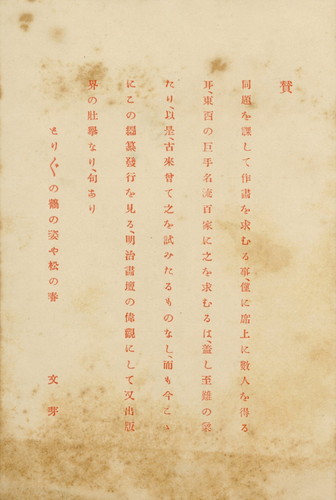 賛
同題を課して作畫を求むる事、僅に席上に數人を得る
耳、東西の巨手名流百家に之を求むるは、蓋し至難の業
たり、以是、古來曾て之を試みたるものなし、而も今こゝ
にこの謄纂發行を見る、明治畫壇の偉觀にして又出版
界の壯擧なり、句あり
とり〴〵の鶴の姿や松の春
文芽